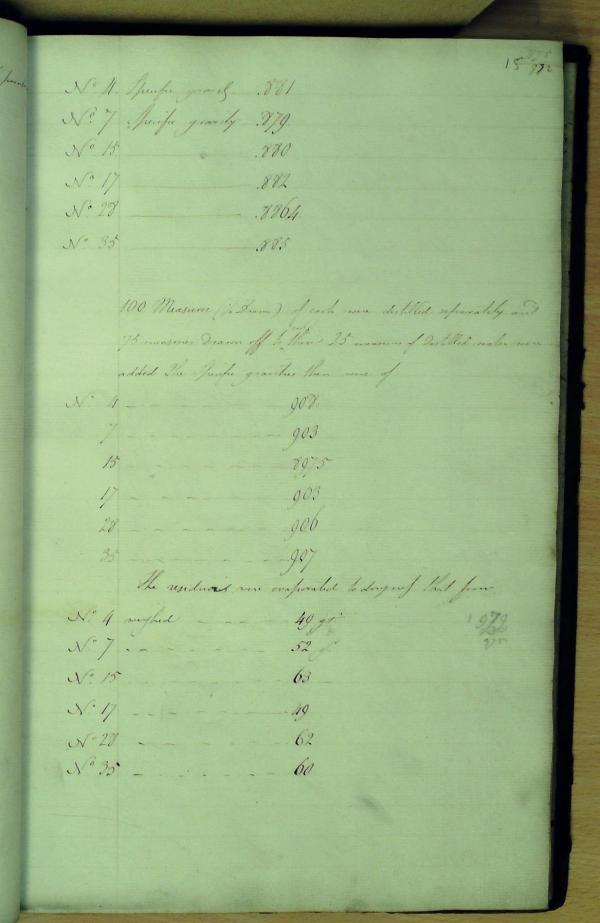 15
No 4 Specific gravity .881
No 7 Specific gravity .879
No 15 .880
No 17 .882
No 28 .8864
No 35 .885
100 Measures of each were distilled separately and
75 measures drawn off to these 25 measures of distilled water were
added The specific gravities then were of
No 4 - - - 908
7 - - - 903
15 - - - 8975
17 - - - 903
28 - - - 906
35 - - - 907
The residua were evaporated to dryness that from
No 4 weighed - - - 49 gr
No 7 - - - 52 gr
No 15 - - - 63
No 17 - - - 49
No 28 - - - 62
No 35 - - - 60